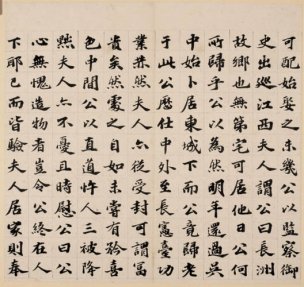 可配始娶之未幾公以監察御
史出巡江西夫人謂公曰長洲
故鄉也無第宅可居他日公何
所歸乎公以為然明年還過吳
中始卜居東城下而公竟歸老
于此公歷仕中外至長憲臺功
業然夫人亦受封可謂富
貴矣然處之自如未嘗有矜喜
色中間公以直道忤人三被降
黜夫人亦不憂且時慰公曰公
心無愧造物者豈令公終在人
下耶已而皆驗夫人居家則奉